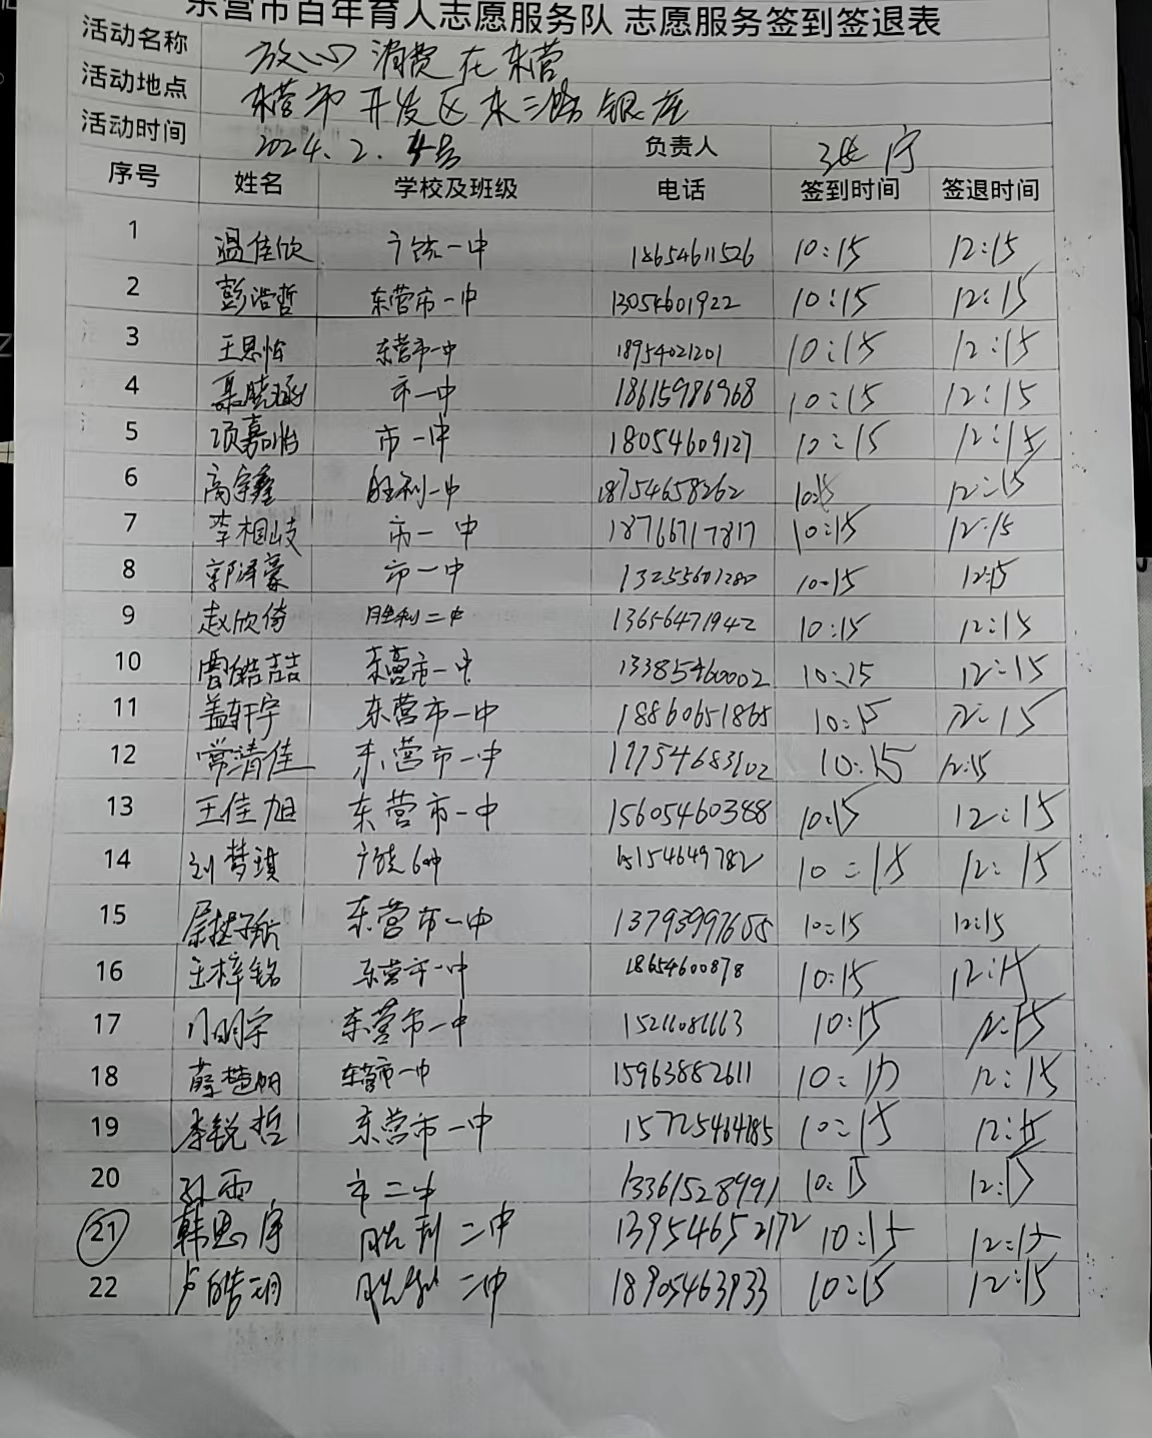 东营市百年育人志愿服务队 志愿服务签到签退表
活动名称 放心消费在东营
活动地点 东营市开发区东三路银座
活动时间 2024.2.4号 负责人 张宁
序号 姓名 学校及班级 电话 签到时间 签退时间
1 温佳欣 广饶一中 18654611526 10:15 12:15
2 彭浩哲 东营市一中 13054601922 10:15 12:15
3 王思怡 东营市一中 18954021201 10:15 12:15
4 聂晓涵 市一中 18615986968 10:15 12:15
5 项嘉怡 市一中 18054609127 12:15 12:15
6 高宇鑫 胜利一中 18754658262 10:15 12:15
7 李相岐 市一中 18766717817 10:15 12:15
8 郭泽蒙 市一中 13255601280 10:15 12:15
9 赵欣倚 胜利二中 13656471942 10:15 12:15
10 曹皓喆 东营市一中 13385460002 10:15 12:15
11 盖轩宇 东营市一中 18860651865 10:15 12:15
12 常清佳 东营市一中 17754683102 10:15 12:15
13 王佳旭 东营市一中 15605460388 10:15 12:15
14 刘梦琪 广饶 15154649782 10:15 12:15
15 航 东营市一中 13793997655 10:15 12:15
16 王梓铭 东营市一中 18654600878 10:15 12:15
17 门明宇 东营市一中 10:15 12:15
18 薛楚明 东营市一中 15963882611 10:15 12:15
19 李锐哲 东营市一中 15725464185 10:15 12:15
20 孙雨 市二中 13361528991 10:15 12:15
21 韩思宇 胜利二中 13954652172 10:15 12:15
22 卢皓明 胜利二中 18905463933 10:15 12:15